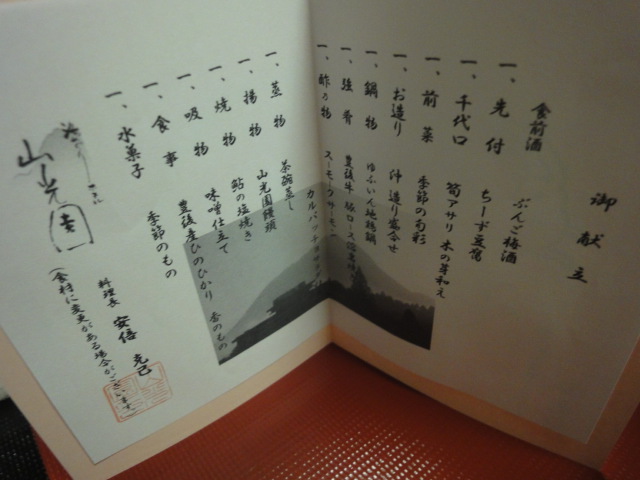 御献立
食前酒 ぶんご梅酒
一、先付 ちーず豆富
一、千代口 筍アサリ木の芽和え
一、前菜 季節の旬彩
一、お造り 沖造り盛合せ
一、鍋物 ゆふいん地鶏鍋
一、強肴 豊後牛
一、酢の物 スモークサーモン
カルパッチョ
一、蒸物 茶碗蒸し
一、揚物 山光園饅頭
一、焼物 鮎の塩焼き
一、吸物 味噌仕立て
一、食事 豊後産ひのひかり 香のもの
一、水菓子 季節のもの
山光園
料理長 安倍 克己
(食材に変更がある場合がございます)